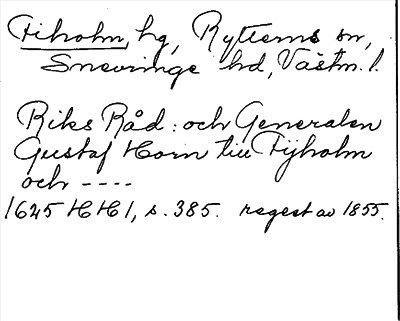 Fiholm, hg, Rytterns sn,
Snevringe hd, Västm. l.
Riks Råd: och Generalen
Gustaf Horn till Fijholm
och ----
1625 HH 1, s. 385. regest av 1855.